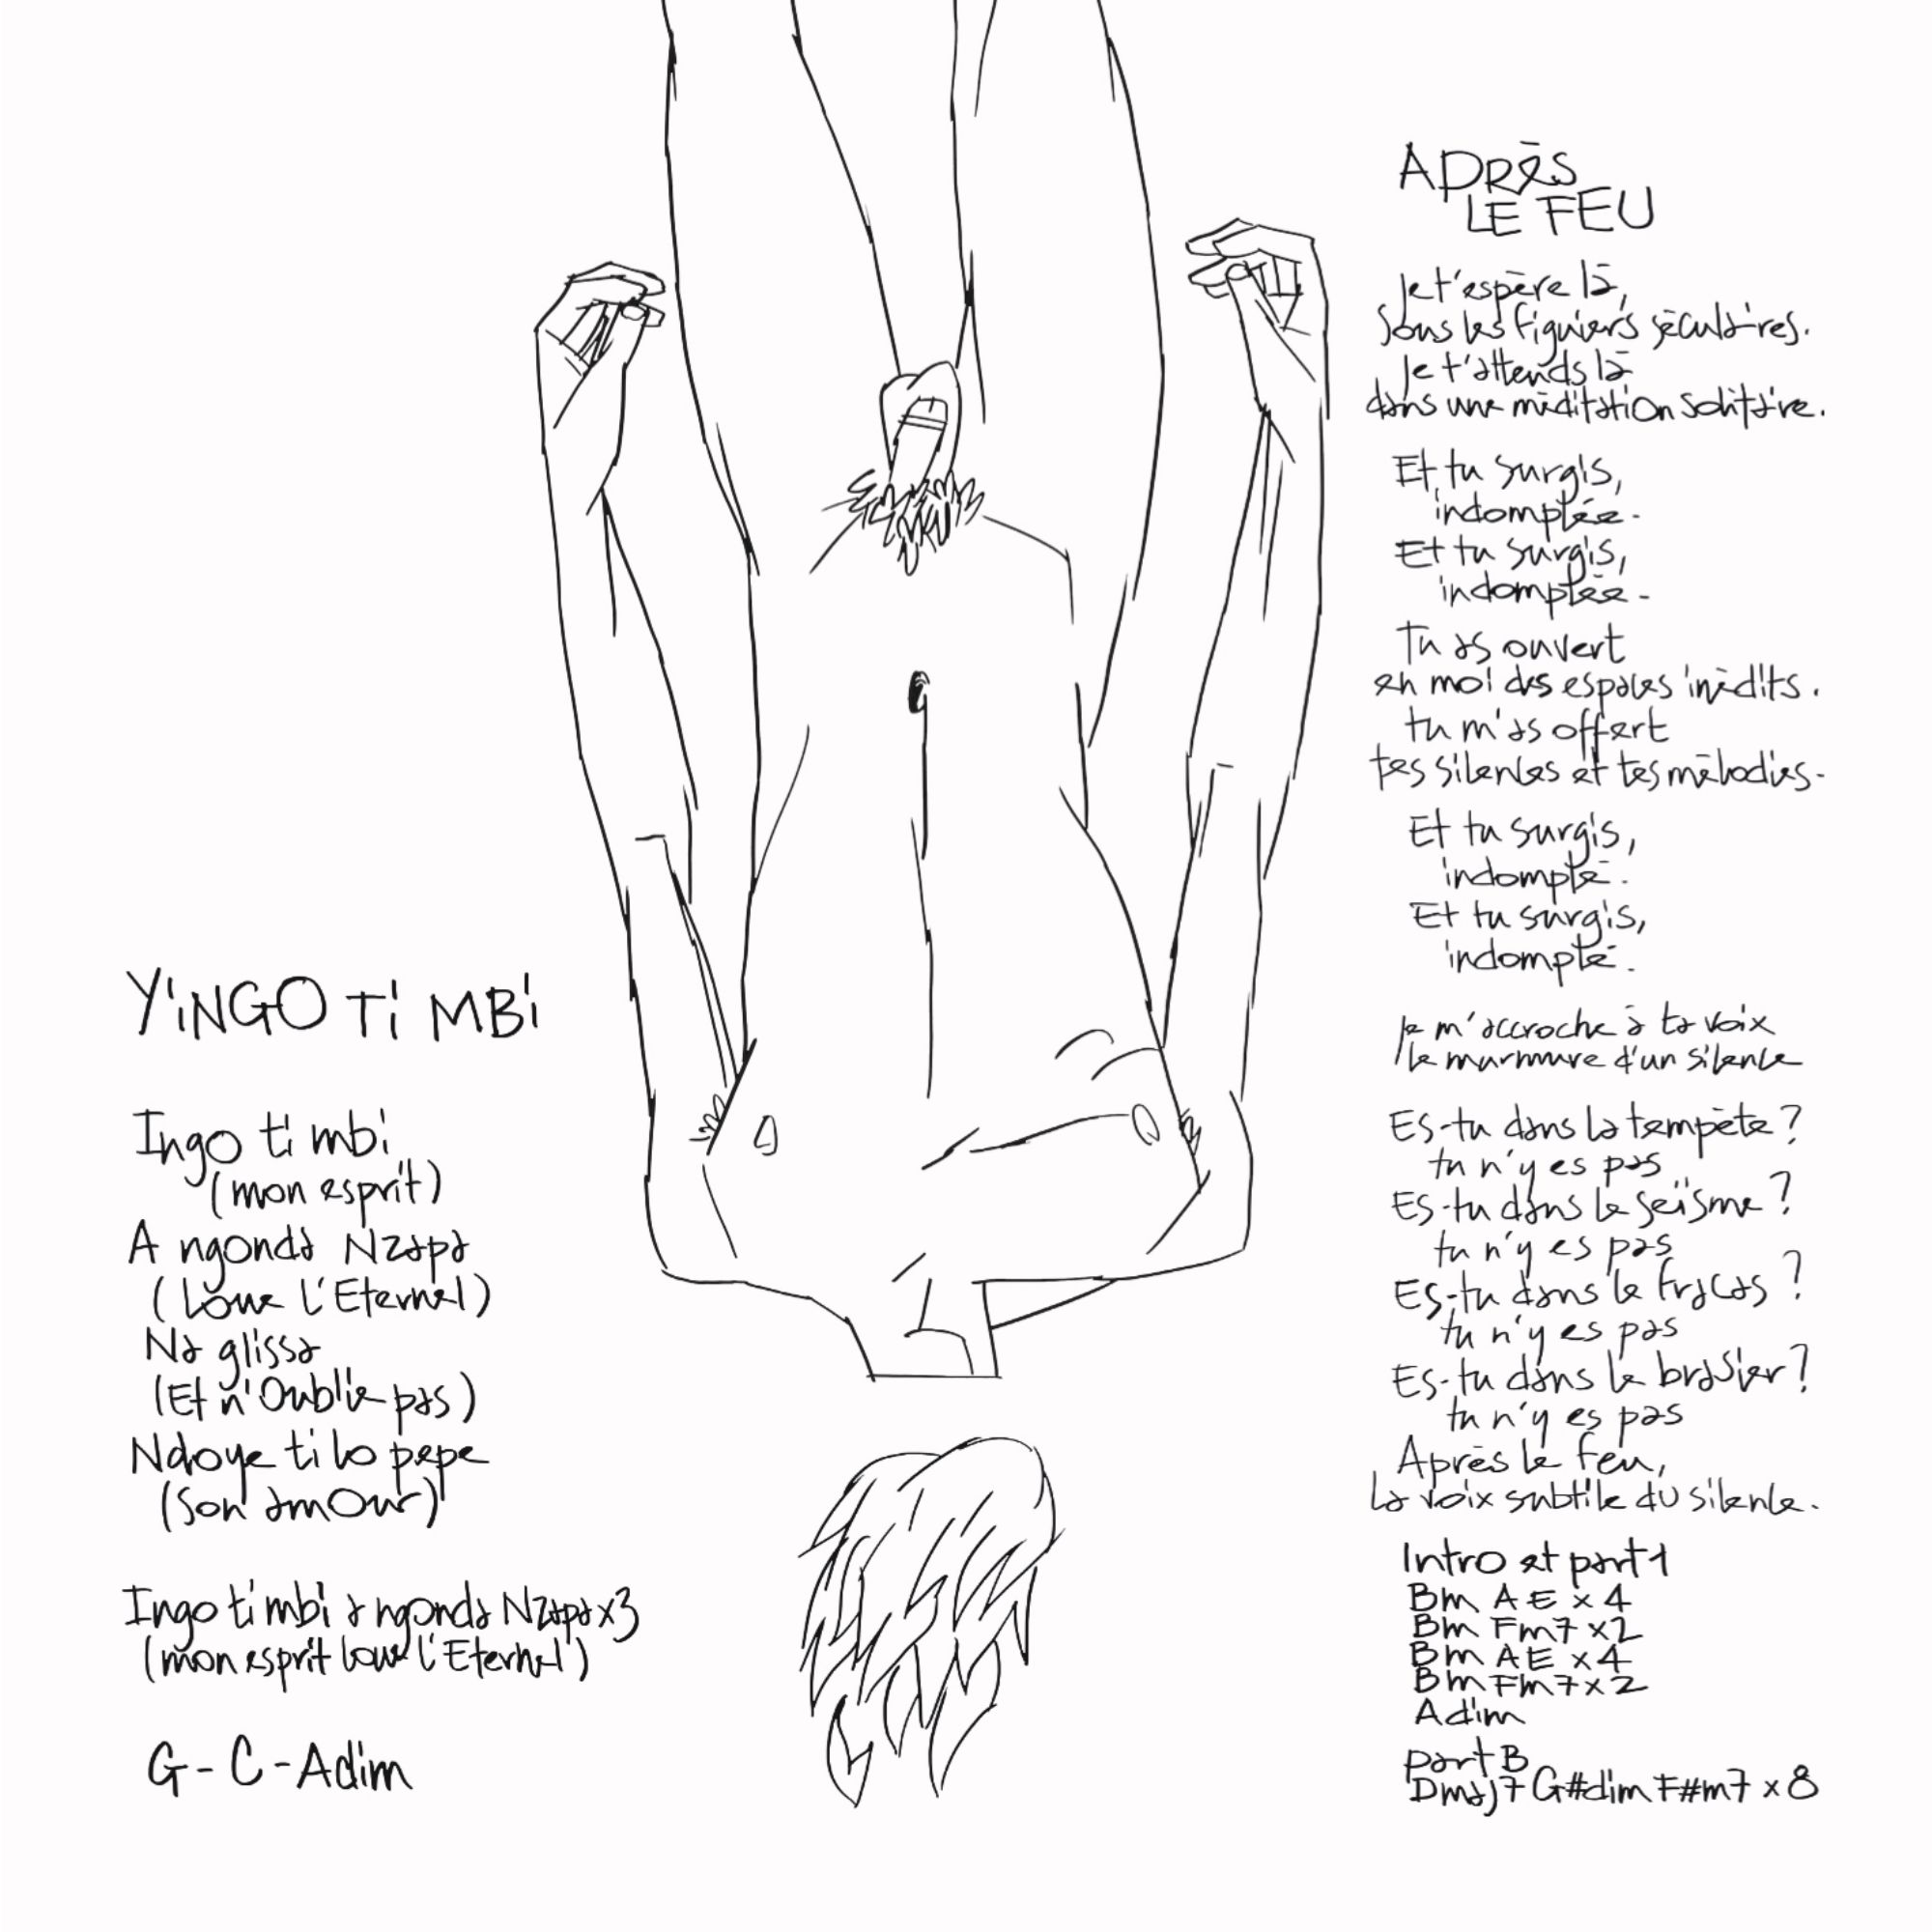 YINGO Ti MBi
Ingo ti mbi
(mon esprit)
A ngonda Nzapa
(Loue l'Eternel)
Na glissa
(Et n'Oublie pas)
Ndoye ti lo pepe
(Son amour)
Ingo ti mbi a ngonda Nzapa x3
(mon esprit loue l'Eternel)
G - C - Adim
APRÈS
LE FEU
Je t'espère là,
sous les figuiers séculaires.
Je t'attends là
dans une méditation solitaire.
Et tu surgis,
indomptée.
Et tu surgis,
indomptée.
Tu as ouvert
en moi des espaces inédits.
tu m'as offert
tes silences et tes mélodies.
Et tu surgis,
indompté.
Et tu surgis,
indompté.
Je m'accroche à ta voix
le murmure d'un silence
Es-tu dans la tempète?
tu n'y es pas
Es-tu dans le seïsme?
tu n'y es pas
Es-tu dans le fracas?
tu n'y es pas
Es-tu dans le brasier?
tu n'y es pas
Après le feu,
La voix subtile du silence.
Intro et part 1
Bm A E x 4
Bm Fm7 x2
Bm A E x 4
Bm Fm7 x 2
Adim
part B
Dmaj7 G#dim F#m7 x 8